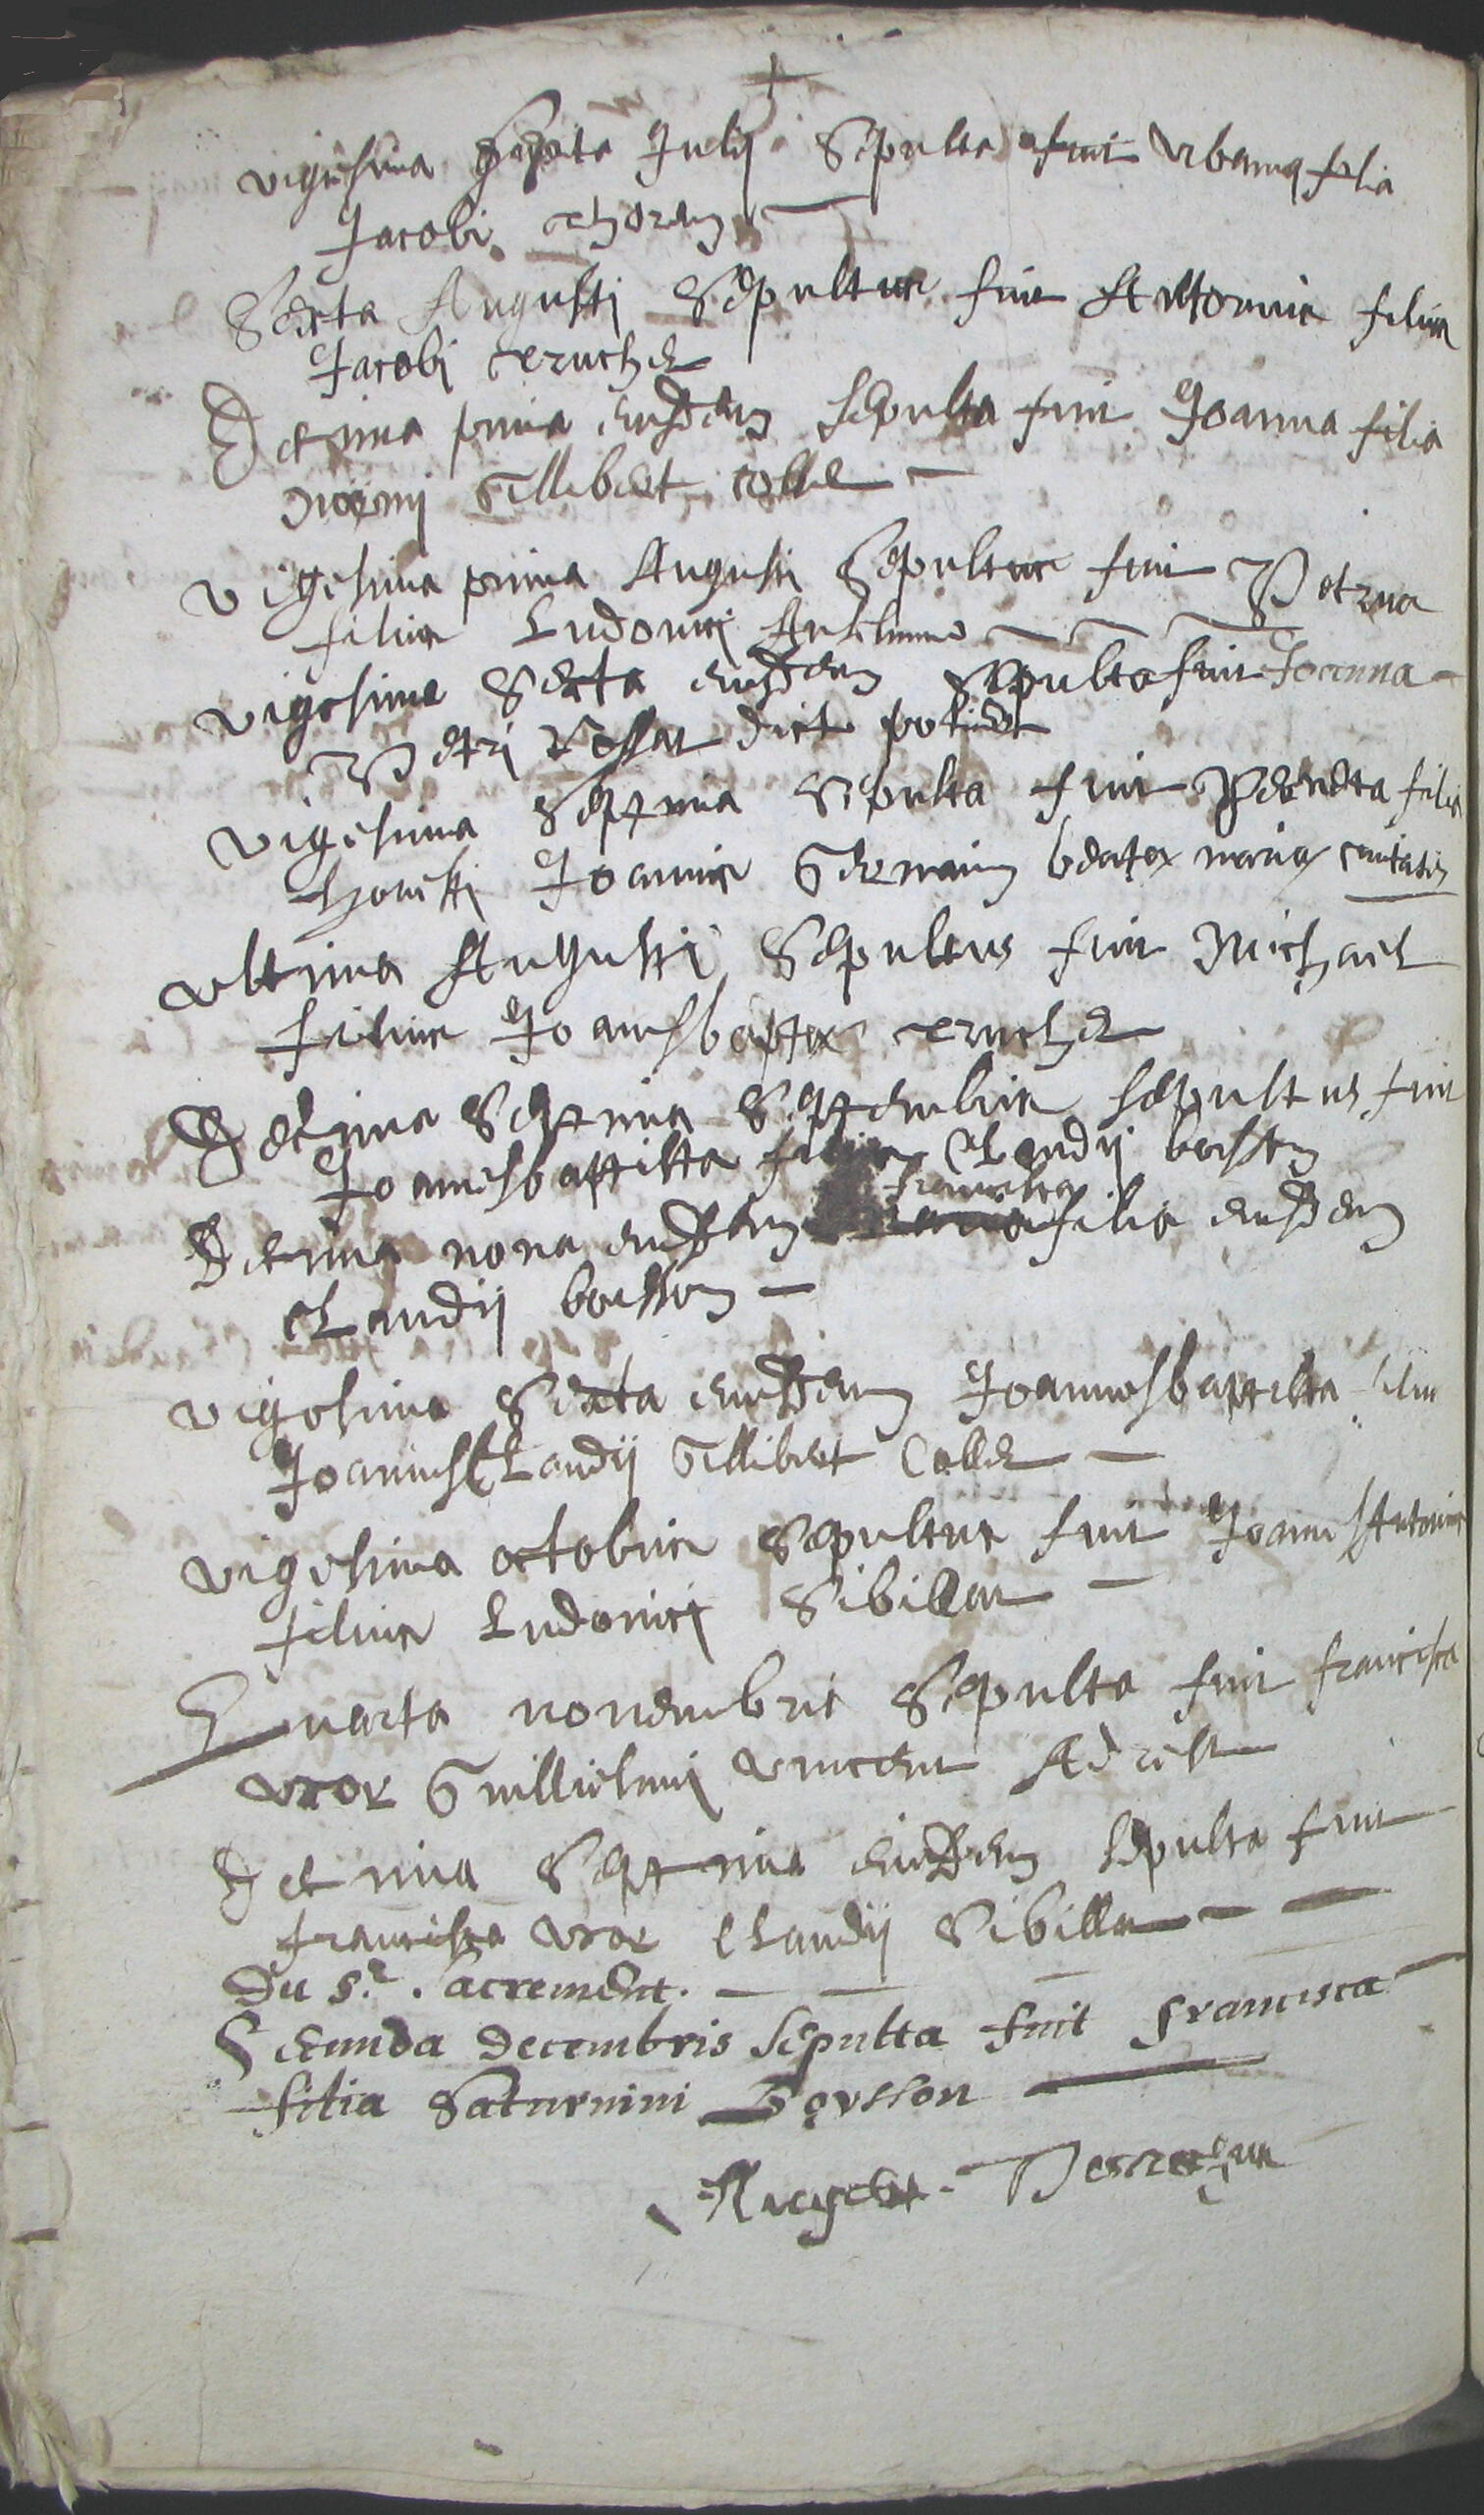 vigesima sexta Julij sepulta fuit urbana filia
Jacobi thoren
Sexta Augusti sepultus fuit Antonius filius
Jacobi cruche
Decima prima eiusdem sepulta fuit Joanna filia
Gillibert colle
vigesima prima Augusti sepultus fuit Petrus
filius Ludovici Anthelme
vigesima sexta eiusdem sepulta fuit Joanna
Petri Rossat dict potier
vigesima septima sepulta fuit Perneta filia
honesti Joannis Germain beatæ mariæ
ultima Augusti sepultus fuit Michael
filius Joannisbaptæ cruche
Decima septima septembris sepultus fuit
Joannesbaptista filius Claudij boisson
Decima nona eiusdem francisca filia eiusdem
Claudij boisson
vigesima sexta eiusdem Joannesbaptista filius
JoannisClaudij Gillibert Colle
vigesima octobris sepultus fuit JoannesAntonius
filius Ludovici Sibillat
Quarta novembris sepulta fuit francisca
uxor Guillielmi vincent
Decima septima eiusdem sepulta fuit
francisca uxor Claudij Sibillat
Du St. sacrement.
Secunda decembris sepulta fuit francisca
filia Saturnini Boysson